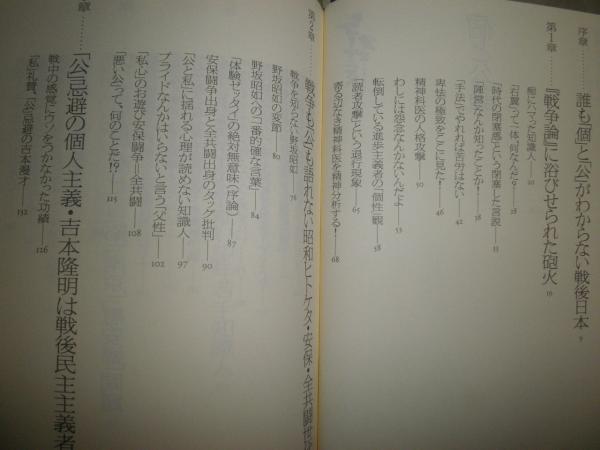 序章……誰も「個」と「公」がわからない戦後日本 9
第1章……『戦争論』に浴びせられた砲火 19
痴にハマった知識人
「右翼」って一体、何なんだ? 28
「時代の閉塞感」という閉塞した言説 33
「陣営」なんか知ったことか! 38
「手法」でやられれば苦労はない 42
卑怯の極致をここに見た! 46
精神科医の人格攻撃 50
わしには怨念なんかないんだよ 53
転倒している進歩主義者の「個性」観 58
「読者攻撃」という退行現象 65
寄る辺なき精神科医を精神分析する! 68
第2章……戦争も「公」も語れない昭和ヒトケタ・安保・全共闘世
戦争を知らない野坂昭如 76
野坂昭如の変節 80
野坂昭如への「一番的確な言葉」 84
「体験ゼッタイ」の絶対無意味(序論) 87
安保闘争出身と全共闘出身のタッグ批判 90
「公と私」に揺れる心理が読めない知識人 97
プライドなんかはいらないと言う「父性」 102
「私」心のお遊び安保闘争=全共闘 108
「悪い公」って、何のことだ!? 115
章……「公」忌避の個人主義・吉本隆明は戦後民主主義者
戦中の感覚にウソをつかなかった功績 126
「私」礼賛、「公」忌避の吉本漫才 132